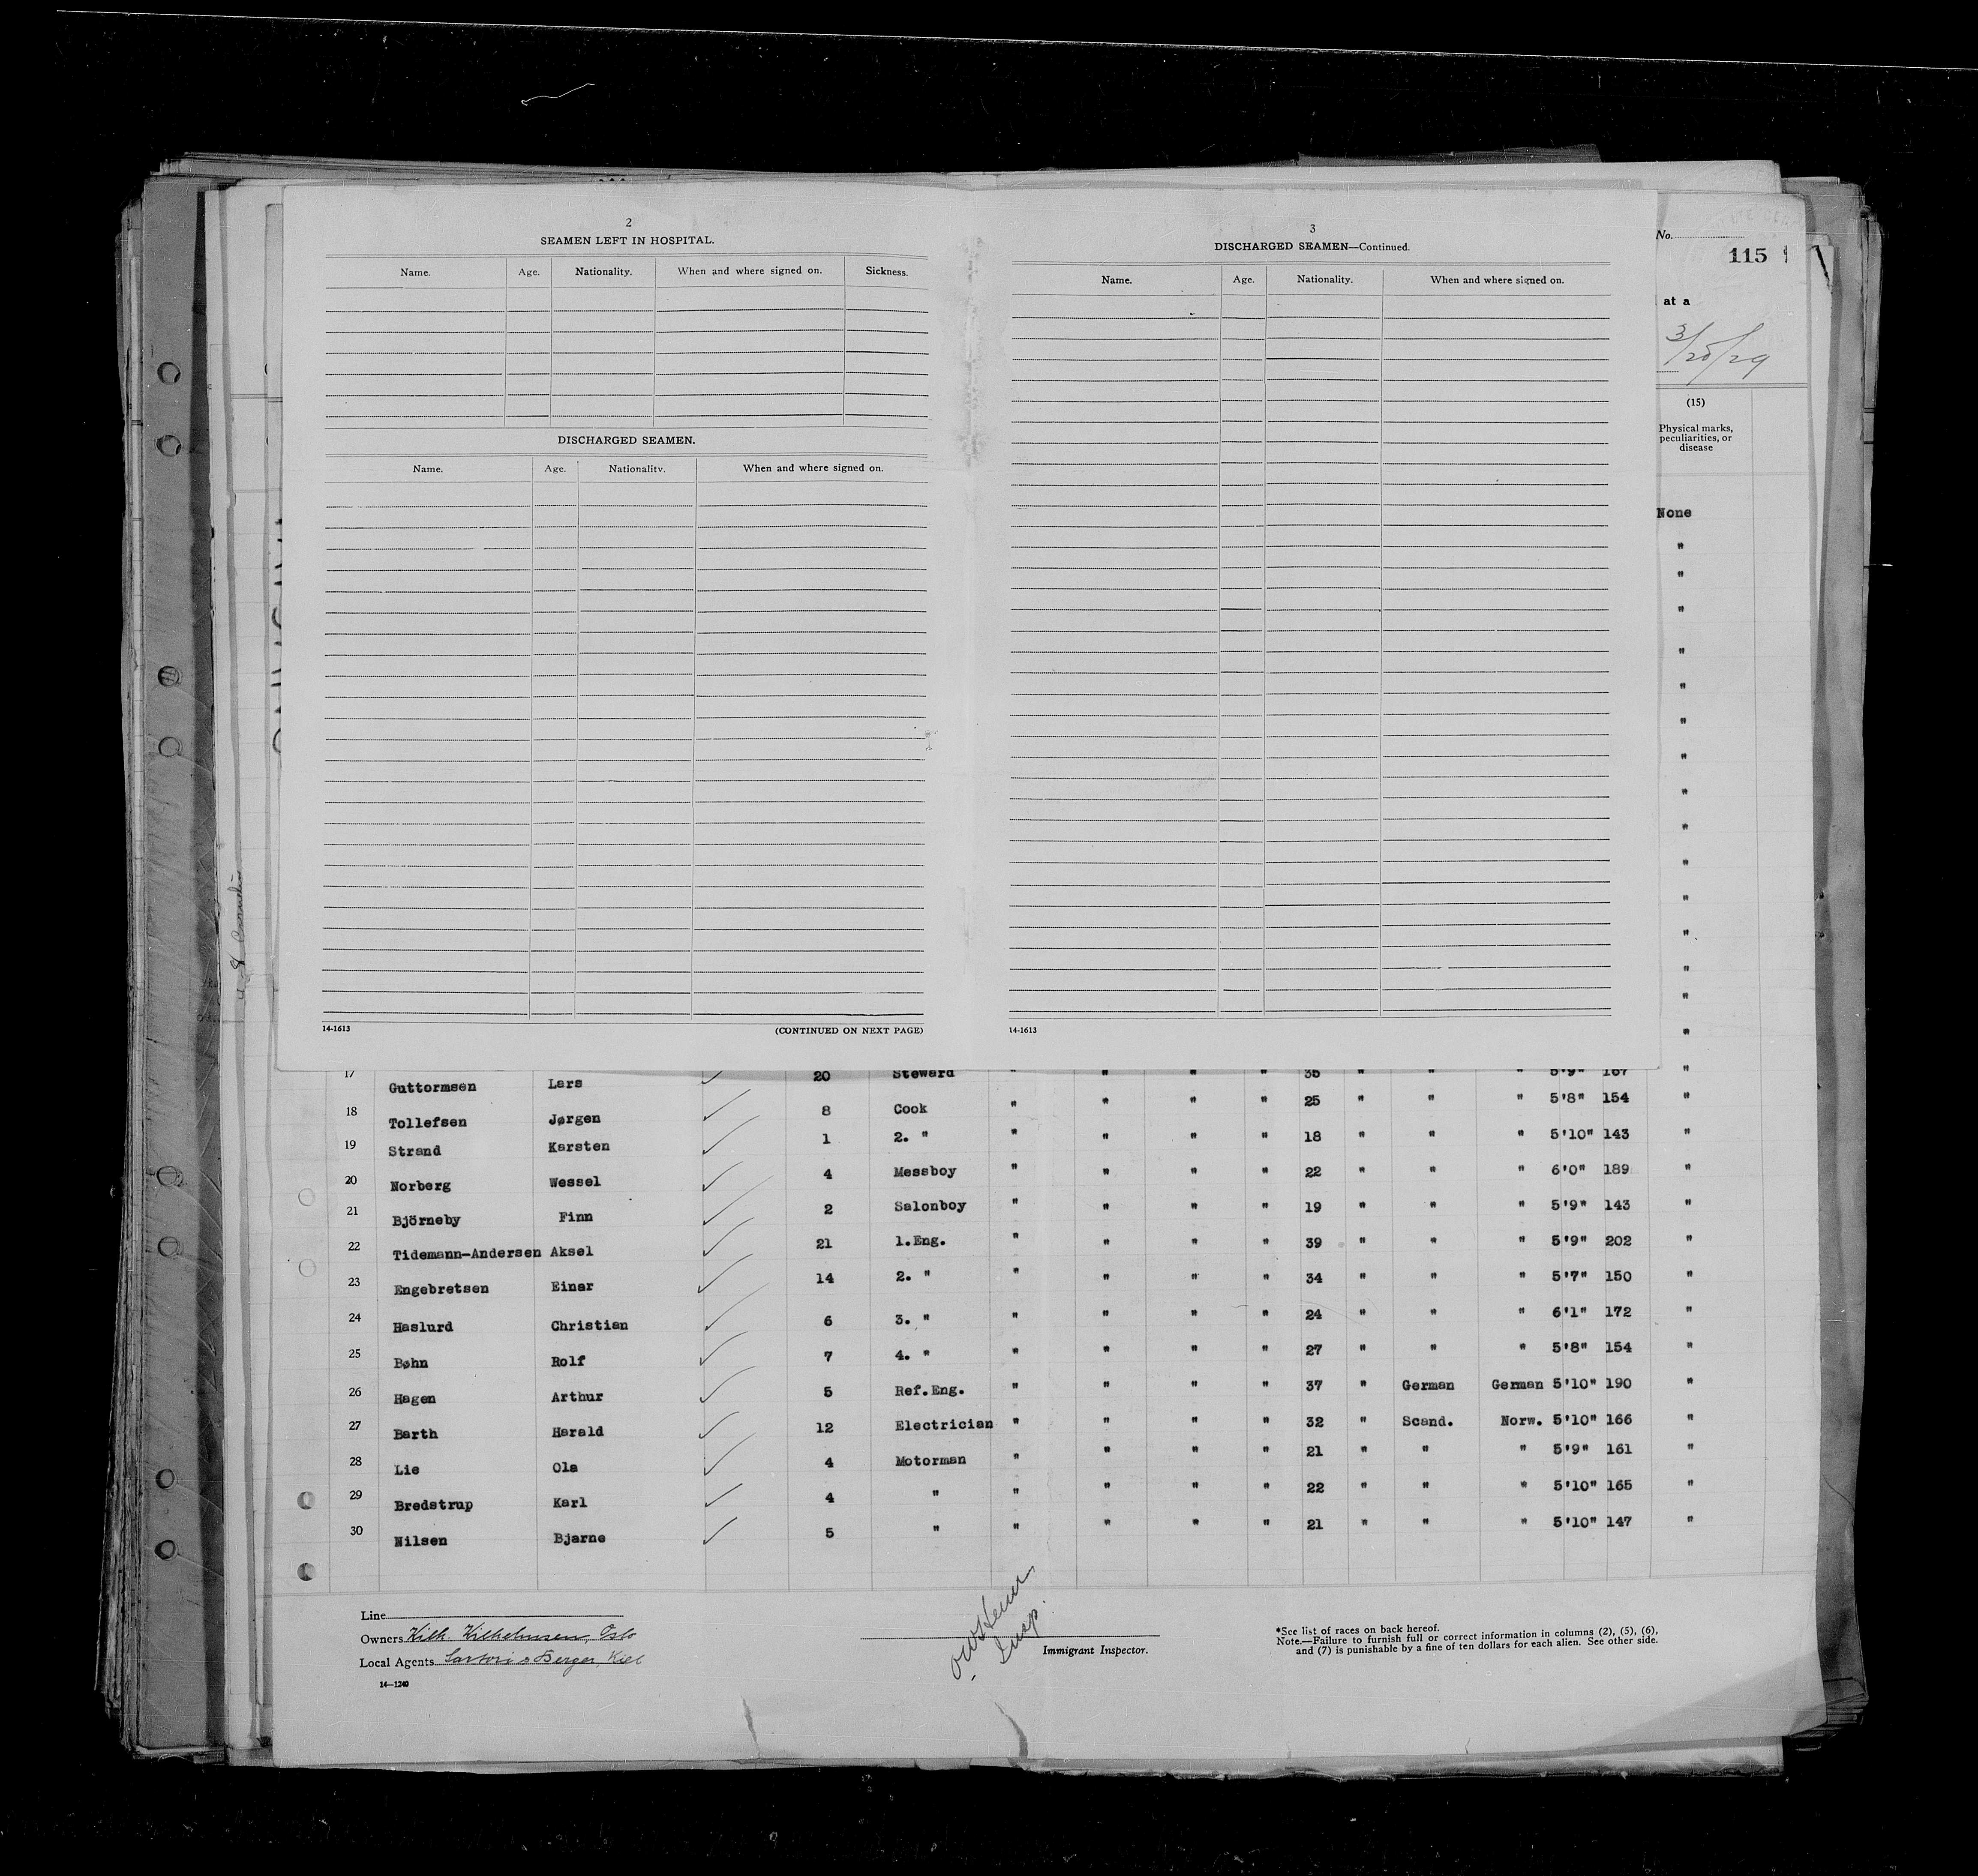 2
SEAMEN LEFT IN HOSPITAL.
Name. Age. Nationality. When and where signed on. Sickness.
DISCHARGED SEAMEN.
Name. Age. Nationality. When and where signed on.
14-1613 (CONTINUED ON NEXT PAGE)
3
DISCHARGED SEAMEN—Continued.
Name. Age. Nationality. When and where signed on.
14-1613
No.
115
at a
3/25/29
(15)
Physical marks,
peculiarities, or
disease
None
"
"
"
"
"
"
"
"
"
"
"
"
"
"
"
17 Guttormsen Lars ✓ 20 Steward " " " " 35 " " " 5'9" 167 "
18 Tollefsen Jørgen ✓ 8 Cook " " " " 25 " " " 5'8" 154 "
19 Strand Karsten ✓ 1 2. " " " " " 18 " " " 5'10" 143 "
20 Norberg Wessel ✓ 4 Messboy " " " " 22 " " " 6'0" 189 "
21 Björneby Finn ✓ 2 Salonboy " " " " 19 " " " 5'9" 143 "
22 Tidemann-Andersen Aksel ✓ 21 1.Eng. " " " " 39 " " " 5'9" 202 "
23 Engebretsen Einar ✓ 14 2. " " " " " 34 " " " 5'7" 150 "
24 Haslurd Christian ✓ 6 3. " " " " " 24 " " " 6'1" 172 "
25 Bøhn Rolf ✓ 7 4. " " " " " 27 " " " 5'8" 154 "
26 Hagen Arthur ✓ 5 Ref.Eng. " " " " 37 " German German 5'10" 190 "
27 Barth Harald ✓ 12 Electrician " " " " 32 " Scand. Norw. 5'10" 166 "
28 Lie Ola ✓ 4 Motorman " " " " 21 " " " 5'9" 161 "
29 Bredstrup Karl ✓ 4 " " " " " 22 " " " 5'10" 165 "
30 Nilsen Bjarne ✓ 5 " " " " " 21 " " " 5'10" 147 "
Line
Owners Wilh. Wilhelmsen, Oslo
Local Agents Sartori & Berger, Kiel
14—1240
Insp.
Immigrant Inspector.
*See list of races on back hereof.
Note.—Failure to furnish full or correct information in columns (2), (5), (6),
and (7) is punishable by a fine of ten dollars for each alien. See other side.